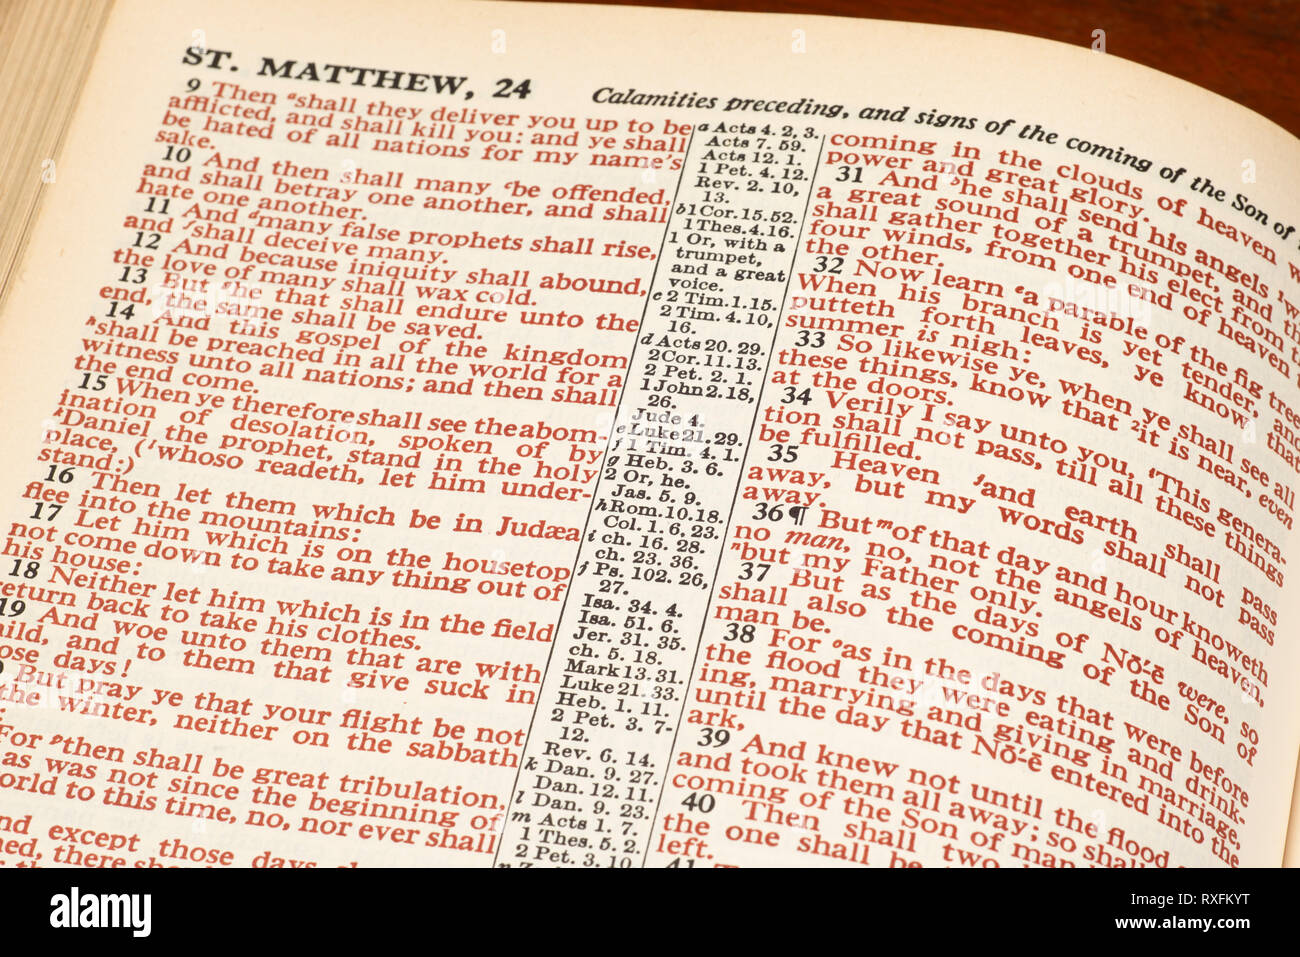 ST. MATTHEW, 24
Calamities preceding, and signs of the coming of the Son of
9 Then ᵃshall they deliver you up to be
afflicted, and shall kill you: and ye shall
be hated of all nations for my name's
sake.
10 And then shall many ᶜbe offended,
and shall betray one another, and shall
hate one another.
11 And ᵈmany false prophets shall rise,
and ᶠshall deceive many.
12 And because iniquity shall abound,
the love of many shall wax cold.
13 But ᵍhe that shall endure unto the
end, the same shall be saved.
14 And this gospel of the kingdom
ʰshall be preached in all the world for a
witness unto all nations; and then shall
the end come.
15 When ye therefore shall see the abom-
ination of desolation, spoken of by
ᵏDaniel the prophet, stand in the holy
place, (ˡwhoso readeth, let him under-
stand:)
16 Then let them which be in Judæa
flee into the mountains:
17 Let him which is on the housetop
not come down to take any thing out of
his house:
18 Neither let him which is in the field
return back to take his clothes.
19 And woe unto them that are with
ild, and to them that give suck in
ose days!
But pray ye that your flight be not
the winter, neither on the sabbath
For ᵖthen shall be great tribulation,
as was not since the beginning of
orld to this time, no, nor ever shall
nd except those days
ed, there
a Acts 4. 2, 3.
Acts 7. 59.
Acts 12. 1.
1 Pet. 4. 12.
Rev. 2. 10,
13.
b 1 Cor. 15. 52.
1 Thes. 4. 16.
1 Or, with a
trumpet,
and a great
voice.
c 2 Tim. 1. 15.
2 Tim. 4. 10,
16.
d Acts 20. 29.
2 Cor. 11. 13.
2 Pet. 2. 1.
1 John 2. 18,
26.
Jude 4.
e Luke 21. 29.
f 1 Tim. 4. 1.
g Heb. 3. 6.
2 Or, he.
Jas. 5. 9.
h Rom. 10. 18.
Col. 1. 6, 23.
i ch. 16. 28.
ch. 23. 36.
j Ps. 102. 26,
27.
Isa. 34. 4.
Isa. 51. 6.
Jer. 31. 35.
ch. 5. 18.
Mark 13. 31.
Luke 21. 33.
Heb. 1. 11.
2 Pet. 3. 7-
12.
Rev. 6. 14.
k Dan. 9. 27.
Dan. 12. 11.
l Dan. 9. 23.
m Acts 1. 7.
1 Thes. 5. 2.
2 Pet. 3. 10
coming in the clouds of heaven w
power and great glory.
31 And ᵇhe shall send his angels ¹w
a great sound of a trumpet, and th
shall gather together his elect from t
four winds, from one end of heaven t
the other.
32 Now learn ᵉa parable of the fig tree
When his branch is yet tender, and
putteth forth leaves, ye know that
summer is nigh:
33 So likewise ye, when ye shall see all
these things, know that ²it is near, even
at the doors.
34 Verily I say unto you, ⁱThis genera-
tion shall not pass, till all these things
be fulfilled.
35 Heaven ʲand earth shall pass
away, but my words shall not pass
away.
36 ¶ But ᵐof that day and hour knoweth
no man, no, not the angels of heaven,
ⁿbut my Father only.
37 But as the days of Nō′-ē were, so
shall also the coming of the Son of
man be.
38 For ᵒas in the days that were before
the flood they were eating and drink-
ing, marrying and giving in marriage,
until the day that Nō′-ē entered into the
ark,
39 And knew not until the flood
and took them all away; so shal
coming of the Son of man
40 Then shall two
the one shall be
left.
41
alamy
Image ID: RXFKYT
www.alamy.com